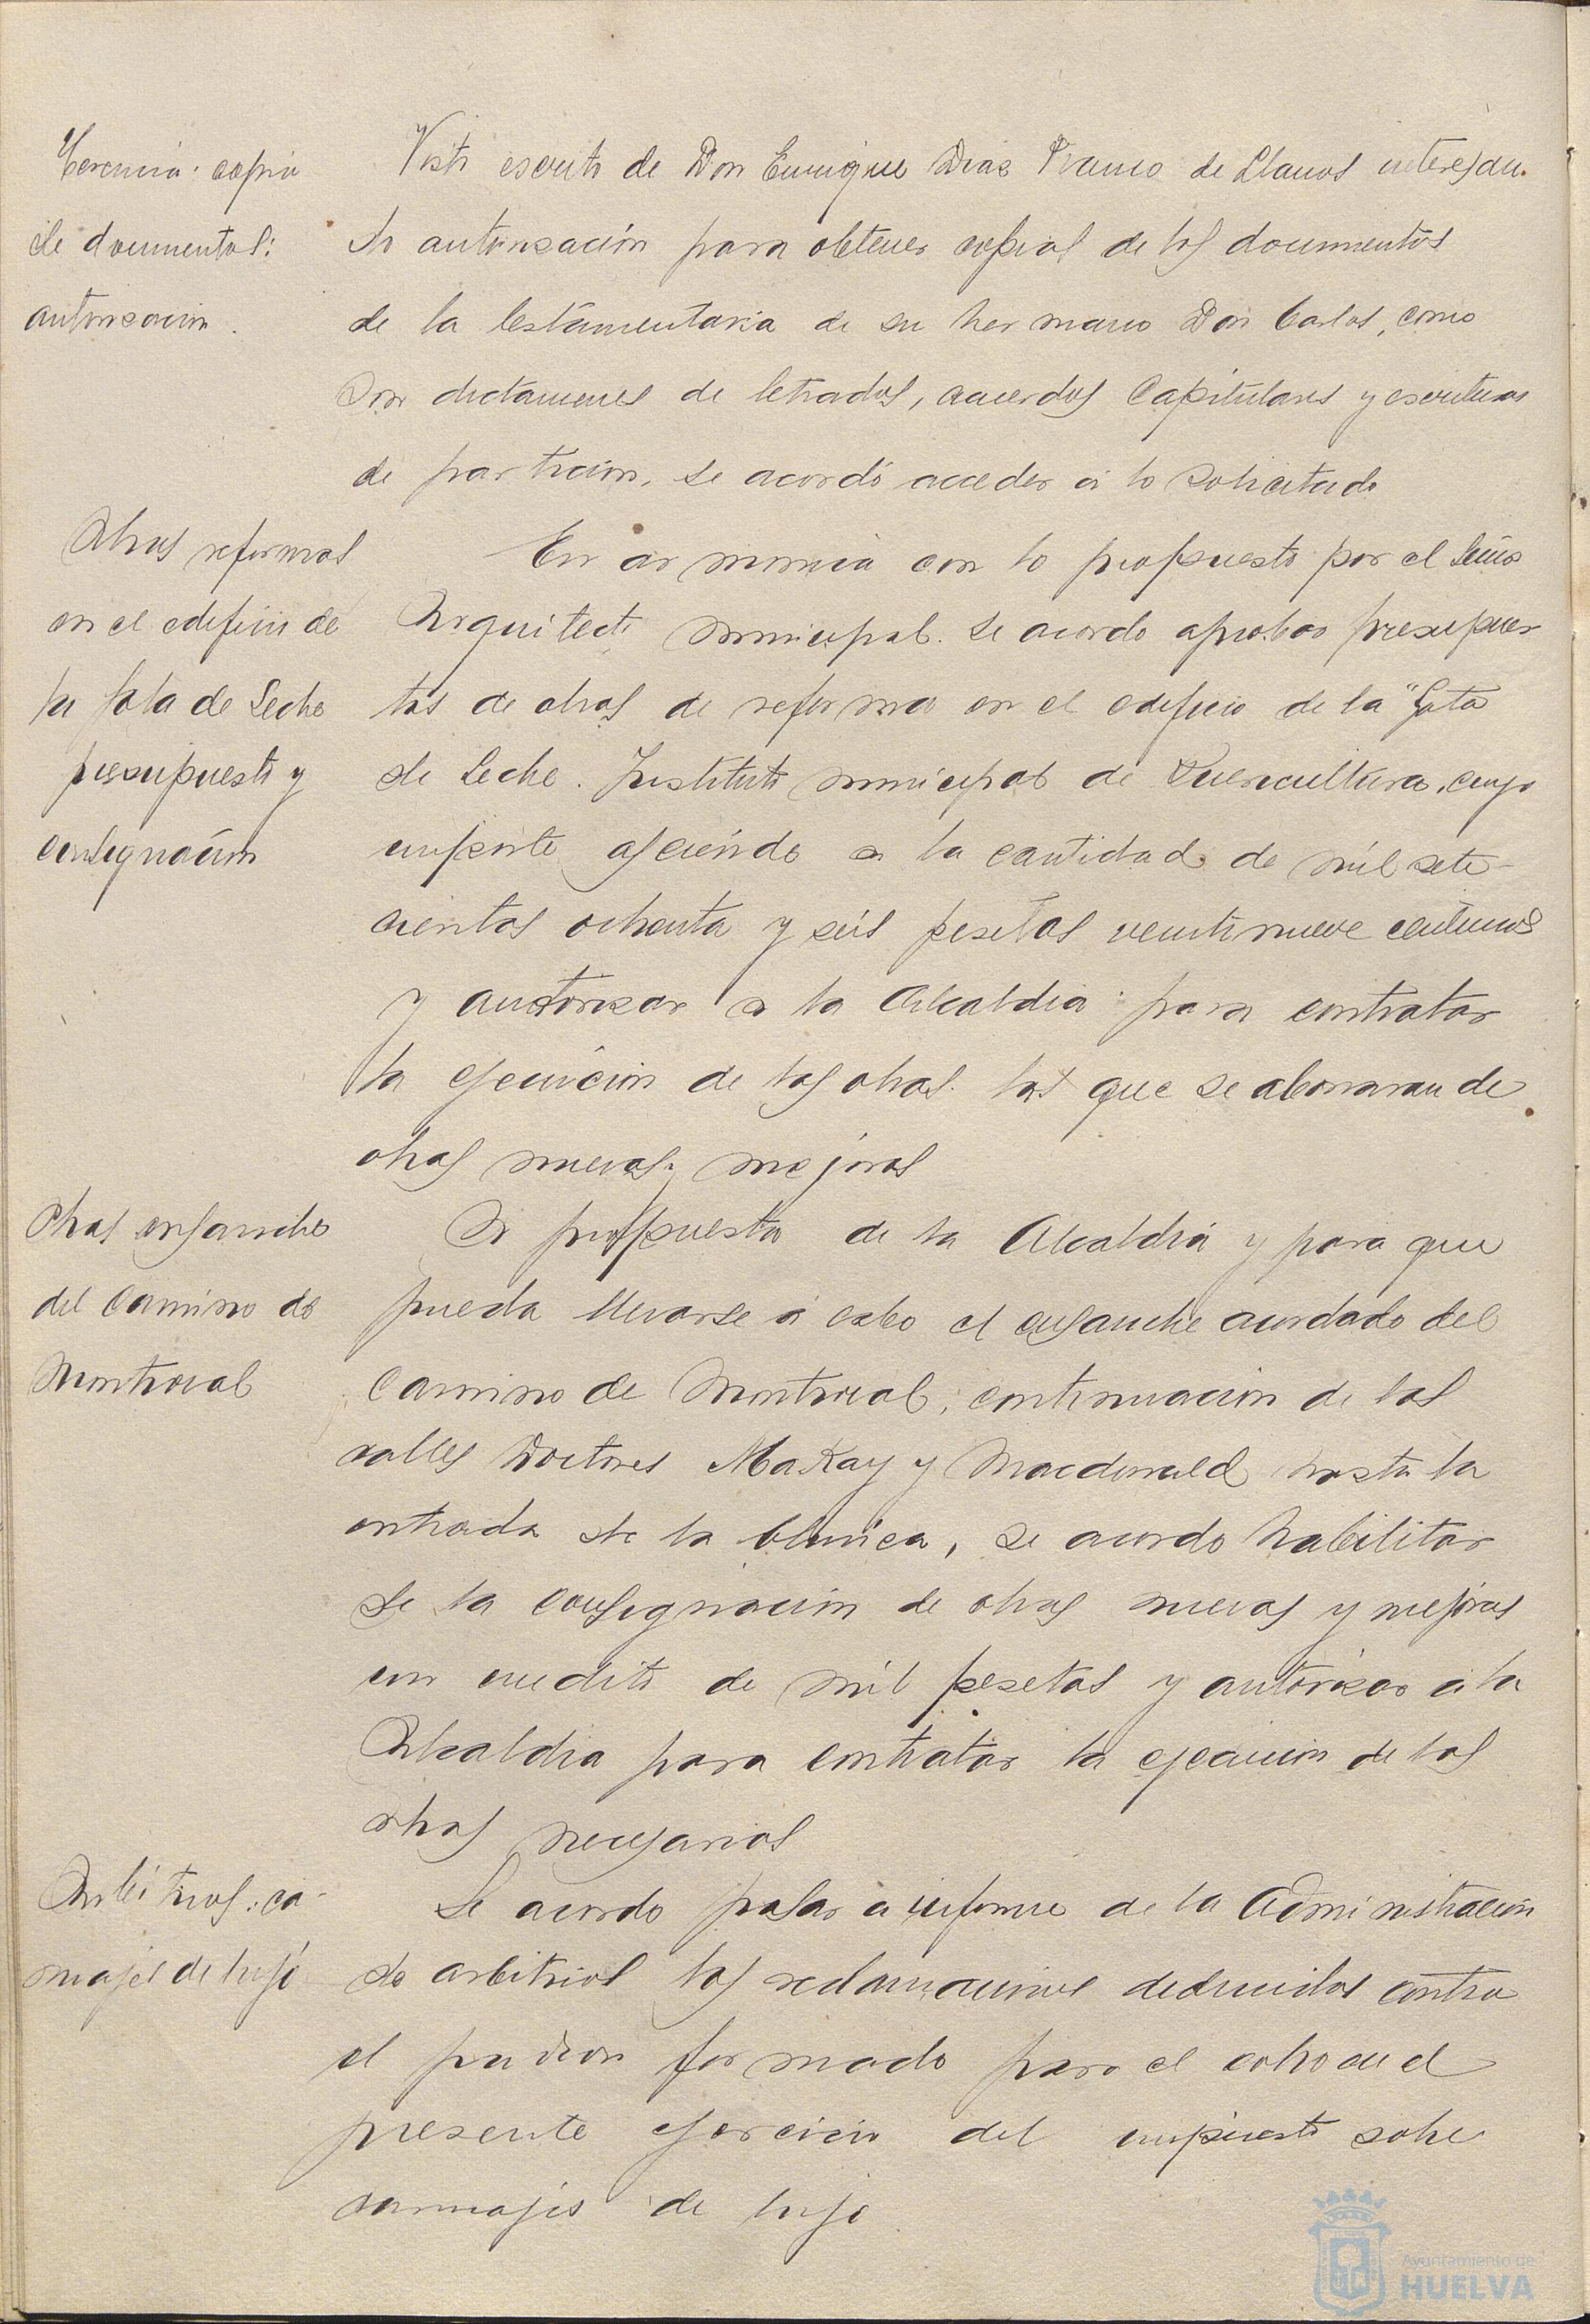 Herencia: copia
de documentos:
autorisacion.
Visto escrito de Don Enrique Diaz Franco de Llanos interesan-
do autorisación para obtener copias de los documentos
de la testamentaria de su hermano Don Carlos, como
son dictamenes de letrados, acuerdos Capitulares y escrituras
de partición, se acordó acceder a lo solicitado
Obras reformas
en el edificio de
la Gota de Leche
presupuesto y
consignación
En armonia con lo propuesto por el Señor
Arquitecto municipal. Se acordo aprobar presupues
tos de obras de reforma en el edificio de la "Gota
de Leche. Instituto municipal de Puericultura, cuyo
importe asciende a la cantidad de mil sete-
cientos ochenta y seis pesetas veintinueve centimos
y autorisar a la Alcaldia para contratar
la ejecucion de las obras. las que se abonaran de
obras nuevas y mejoras
Obras ensanche
del Camino de
Montrocal
A propuesta de la Alcaldia y para que
pueda llevarse a cabo el ensanche acordado del
Camino de Montrocal, continuacion de las
calles Doctores MaKay y Macdonald hasta la
entrada de la Clinica, se acordo habilitar
de la consignacion de obras nuevas y mejoras
un credito de mil pesetas y autorisar a la
Alcaldia para contratar la ejecucion de las
obras necesarias
Arbitrios: ca-
rruajes de lujo
Se acordo pasar a informe de la Administracion
de arbitrios las reclamaciones deducidas contra
el padron formado para el cobro en el
presente ejercicio del impuesto sobre
carruajes de lujo
Ayuntamiento de
HUELVA